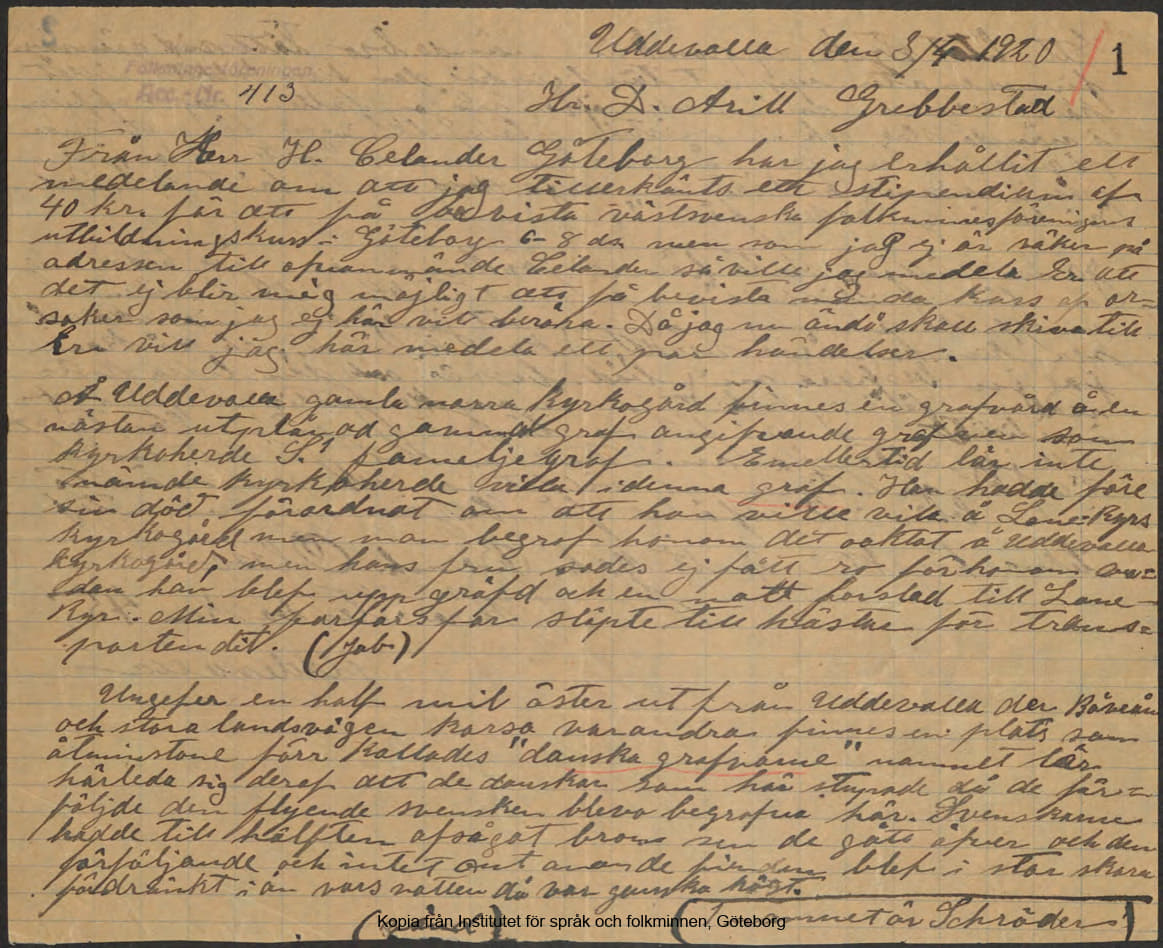 Uddevalla den 3/4 1920
1
Folkminnesföreningen
Acc. Nr. 413
Hr. D. Arill Grebbestad
Från Herr H. Celander Göteborg har jag erhållit ett
medelande om att jag tillerkänts ett stipendium af
40 kr. för att få bevista västsvenska folkminnesföreningens
utbildningskurs i Göteborg 6-8 ds. men som jag ej är säker på
adressen till ofvannämnde Celander så ville jag medela Er att
det ej blir mig möjligt att få bevista da kurs af or=
saker som jag ej här vill beröra. Då jag nu ändå skall skiva till
Er vill jag här medela ett par händelser.
Å Uddevalla gamla norra Kyrkogård finnes en grafvård å en
nästan utplånad gammal graf angifvande grafven som
Kyrkoherde S:s fameljegraf. Emellertid lär inte
nämde Kyrkoherde vila i denna graf. Han hadde före
sin död förordnat om att han ville vila å Lane=Kyrs
Kyrkogård men man begrof honom det oaktat å Uddevalla
Kyrkogård, men hans fru sades ej fått ro för honom
dan han blef upp gräfd och en natt forslad till Lane-
Ryr. Min farfars far släpte till hästar för trans=
porten dit. (Jab)
Ungefer en half mil öster ut från Uddevalla der Bäveån
och stora landsvägen korsa varandra finnes en plats som
åtminstone förr kallades "danska grafvarne" namnet lär
härleda sig deraf att de danskar som här stupade då de för=
följde den flyende svensken blevo begrafna här. Svenskarne
hadde till hälften afsågat bron sen de gått öfver och den
förföljande och intet ont anande fienden blef i stor skara
fördränkt i ån vars vatten då var ganska högt.
(namnet är Schröder)
Kopia från Institutet för språk och folkminnen, Göteborg